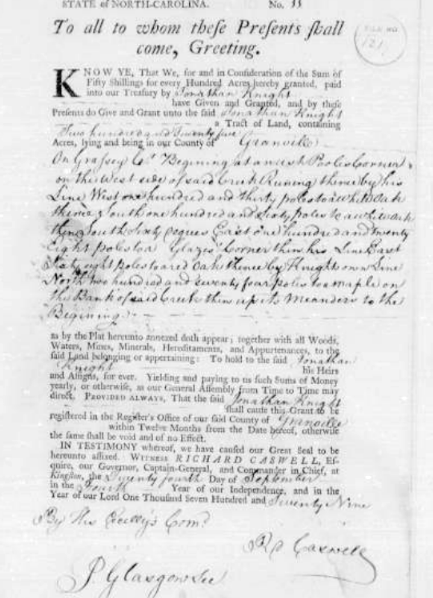 STATE of NORTH-CAROLINA. No. 33
FILE NO.
121
To all to whom these Presents shall
come, Greeting.
KNOW YE, That We, for and in Consideration of the Sum of
Fifty Shillings for every Hundred Acres hereby granted, paid
into our Treasury by Jonathan Knight
have Given and Granted, and by these
Presents do Give and Grant unto the said Jonathan Knight
a Tract of Land, containing
Two hundred and Seventy five
Acres, lying and being in our County of Granville
On Grassey Begining at Corner
on the West side of said Creek Runing thence by his
Line West one hundred and thirty poles to a white oak
thence South one hundred and Sixty poles to a white oak
then South Sixty East one hundred and twenty
Eight poles to a Corner then his Line East
Sixty eight poles to a red Oak thence by Knights own Line
North two hundred and seventy four poles to a maple on
the Bank of said Creek then up its Meanders to the
Begining
as by the Plat hereunto annexed doth appear; together with all Woods,
Waters, Mines, Minerals, Hereditaments, and Appurtenances, to the
said Land belonging or appertaining: To hold to the said Jonathan
Knight his Heirs
and Assigns, for ever. Yielding and paying to us such Sums of Money
yearly, or otherwise, as our General Assembly from Time to Time may
direct. PROVIDED ALWAYS, That the said Jonathan Knight
shall cause this Grant to be
registered in the Register's Office of our said County of Granville
within Twelve Months from the Date hereof, otherwise
the same shall be void and of no Effect.
IN TESTIMONY whereof, we have caused our Great Seal to be
hereunto affixed. WITNESS RICHARD CASWELL, Es-
quire, our Governor, Captain-General, and Commander in Chief, at
Kingston, the Twenty fourth Day of September
in the Fourth Year of our Independence, and in the
Year of our Lord One Thousand Seven Hundred and Seventy Nine
By His Com
Rd Caswell
J. Glasgow Sec